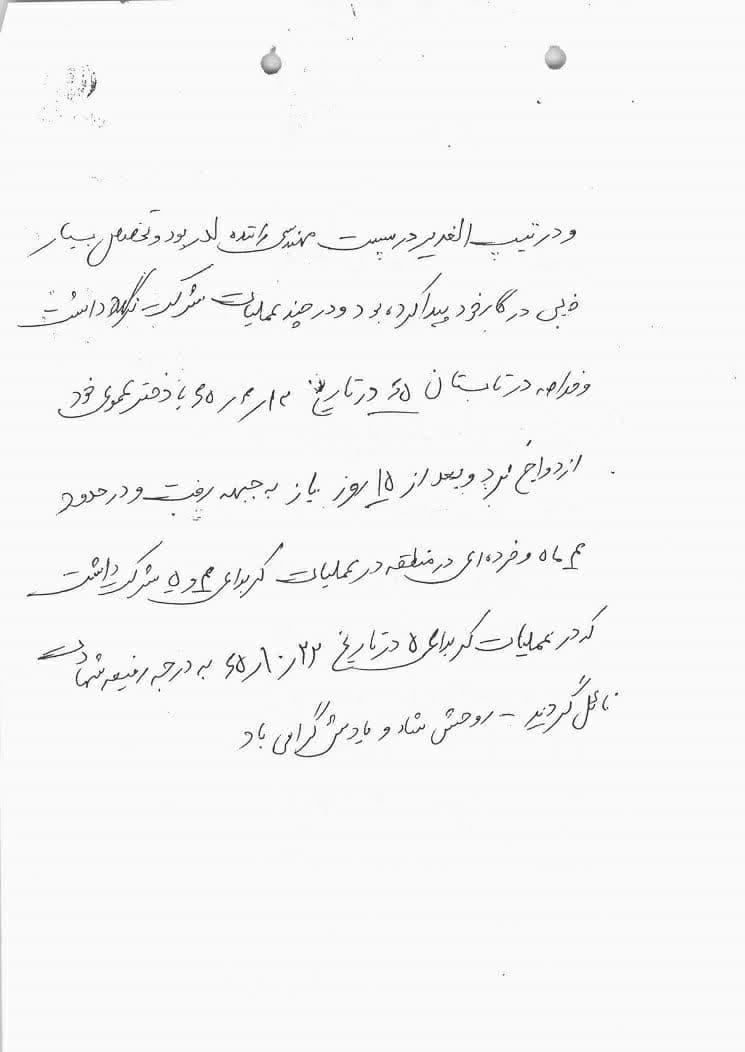 و در تیپ الغدیر در سپست مهندسی راننده لدر بود و تخصص بسیار
خوبی در کار خود پیدا کرده بود و در چند عملیات شرکت داشت
و خلاصه در تابستان ۶۵ در تاریخ ۶۵/۴/۱۲ با دختر عموی خود
ازدواج نمود و بعد از ۱۵ روز باز به جبهه رفت و در حدود
۴ ماه و خرده‌ای در منطقه در عملیات کربلای ۴ و ۵ شرکت داشت
که در عملیات کربلای ۵ در تاریخ ۶۵/۱۰/۲۳ به درجه رفیعه شهادت
نائل گردید - روحش شاد و یادش گرامی باد